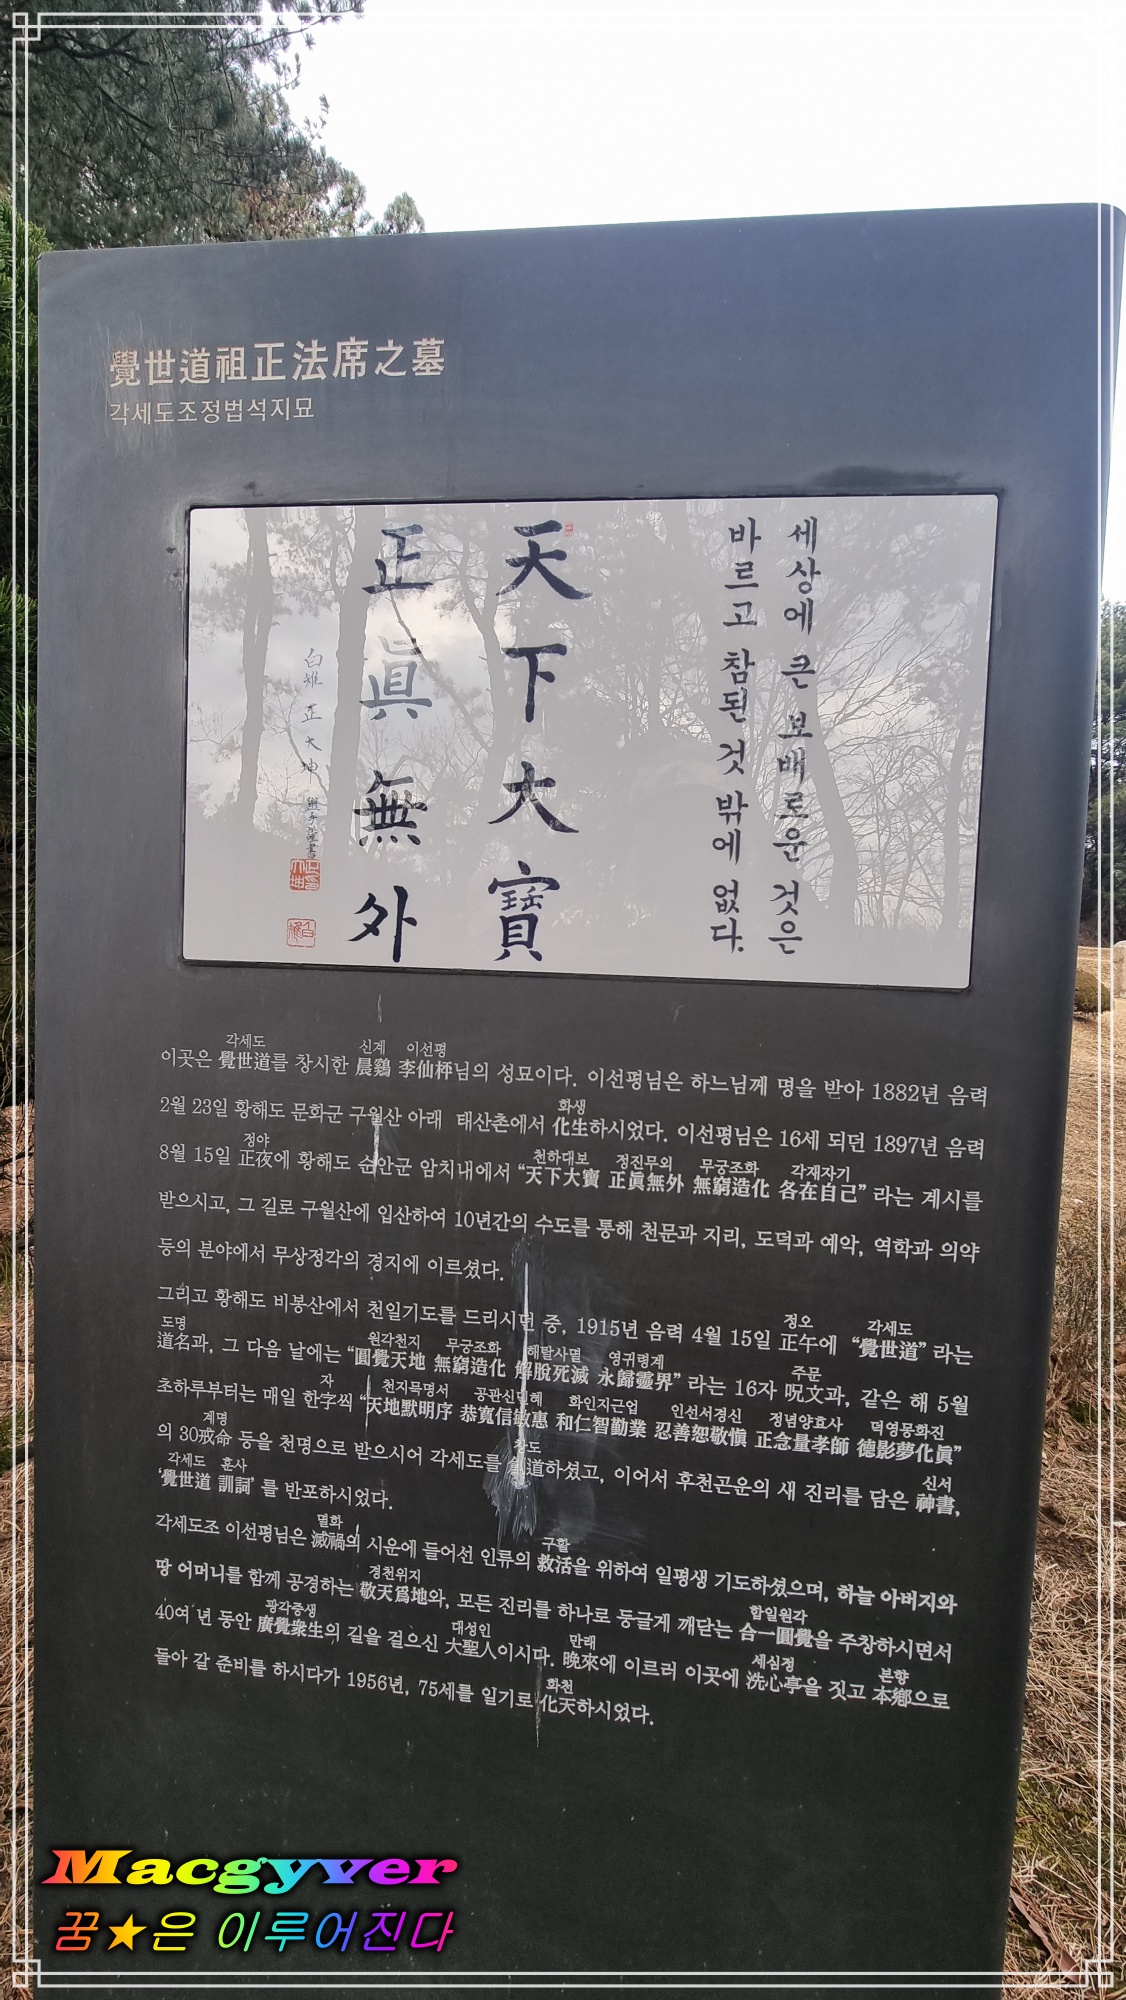 覺世道祖正法席之墓
각세도조정법석지묘
세상에 큰 보배로운 것은
바르고 참된 것 밖에 없다.
天下大寶
正眞無外
正大坤
각세도 신계 이선평
이곳은 覺世道를 창시한 晨鷄 李仙枰님의 성묘이다. 이선평님은 하느님께 명을 받아 1882년 음력
화생
2월 23일 황해도 문화군 구월산 아래 태산촌에서 化生하시었다. 이선평님은 16세 되던 1897년 음력
정야 천하대보 정진무외 무궁조화 각재자기
8월 15일 正夜에 황해도 순안군 암치내에서 “天下大寶 正眞無外 無窮造化 各在自己” 라는 계시를
받으시고, 그 길로 구월산에 입산하여 10년간의 수도를 통해 천문과 지리, 도덕과 예악, 역학과 의약
등의 분야에서 무상정각의 경지에 이르셨다.
정오 각세도
그리고 황해도 비봉산에서 천일기도를 드리시던 중, 1915년 음력 4월 15일 正午에 “覺世道” 라는
도명 원각천지 무궁조화 해탈사멸 영귀령계 주문
道名과, 그 다음 날에는 “圓覺天地 無窮造化 解脫死滅 永歸靈界” 라는 16자 呪文과, 같은 해 5월
자 천지묵명서 공관신민혜 화인지근업 인선서경신 정념양효사 덕영몽화진
초하루부터는 매일 한字씩 “天地默明序 恭寬信敏惠 和仁智勤業 忍善恕敬愼 正念量孝師 德影夢化眞”
계명 창도
의 30戒命 등을 천명으로 받으시어 각세도를 創道하셨고, 이어서 후천곤운의 새 진리를 담은 神書,
각세도 훈사 신서
‘覺世道 訓詞’ 를 반포하시었다.
멸화 구활
각세도조 이선평님은 滅禍의 시운에 들어선 인류의 救活을 위하여 일평생 기도하셨으며, 하늘 아버지와
경천위지 합일원각
땅 어머니를 함께 공경하는 敬天爲地와, 모든 진리를 하나로 둥글게 깨닫는 合一圓覺을 주창하시면서
광각중생 대성인 만래 세심정 본향
40여 년 동안 廣覺衆生의 길을 걸으신 大聖人이시다. 晩來에 이르러 이곳에 洗心亭을 짓고 本鄕으로
화천
돌아 갈 준비를 하시다가 1956년, 75세를 일기로 化天하시었다.
Macgyver
꿈★은 이루어진다